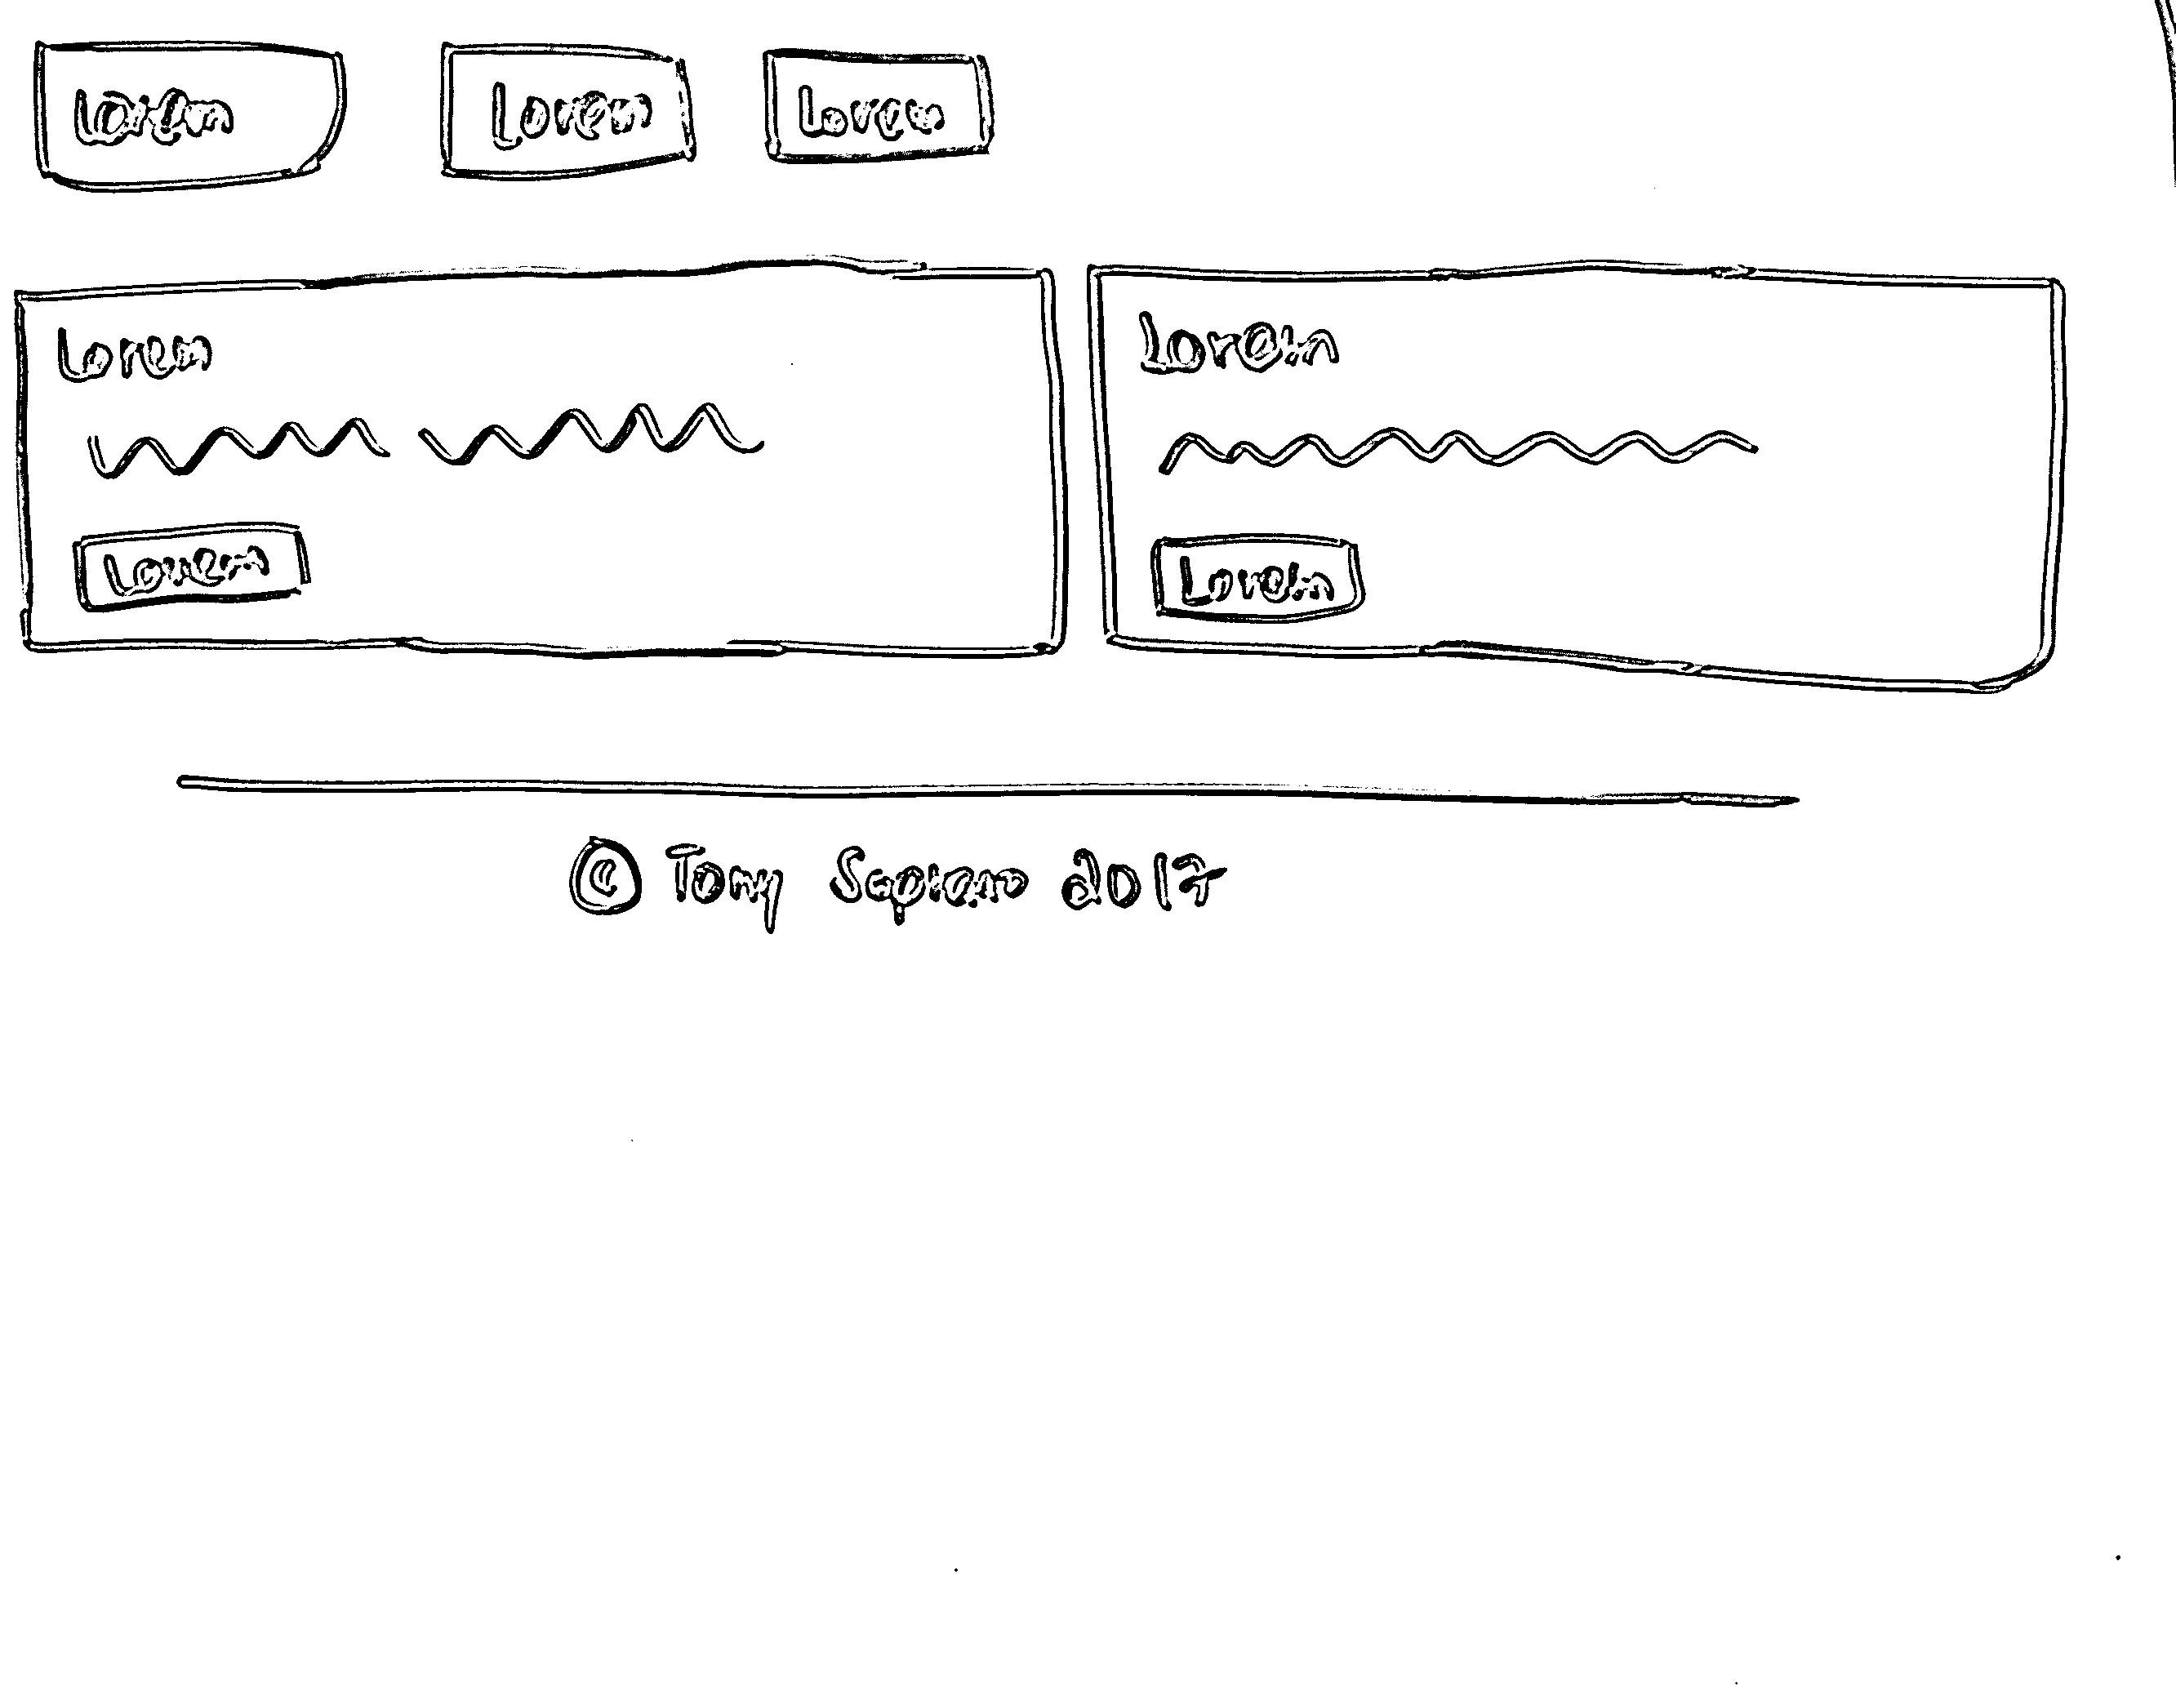 Lorem Lorem Lorem
Lorem
Lorem
Lorem
Lorem
© Tony Sapiano 2017